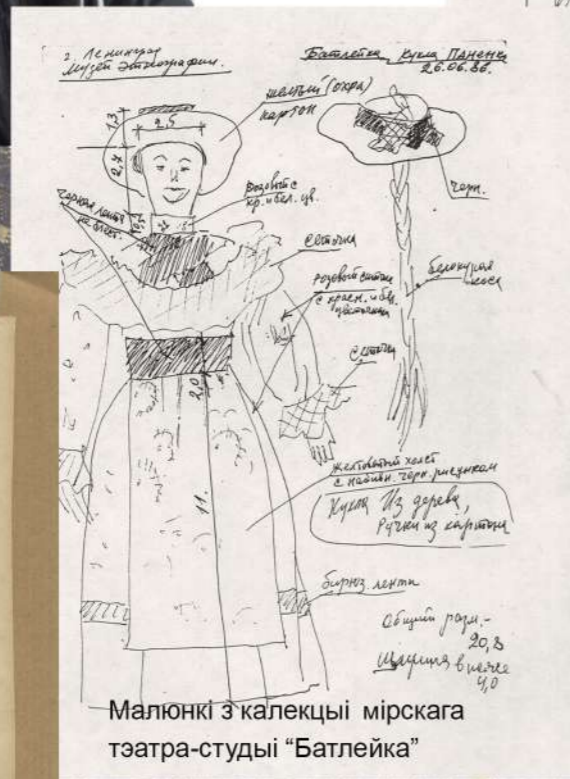 г. Ленинград
Музей Этнографии.
Батлейка, Кукла Паненка
26.06.86.
желтый (охра)
картон
1,3
2,5
2,7
Черная лента
не блест.
розовый с
кр. и бел. цв.
черн.
сеточка
белокурая
коса
розовый ситец
с красн. и бел.
цветочками
сеточка
2,0
11.
желтоватый холст
с набивн. черн. рисунком
Кукла Из дерева,
Ручки из картона
бирюз. лента
Общий разм.-
20,8
Ширина в плече
4,0
Малюнкі з калекцыі мірскага
тэатра-студыі “Батлейка”